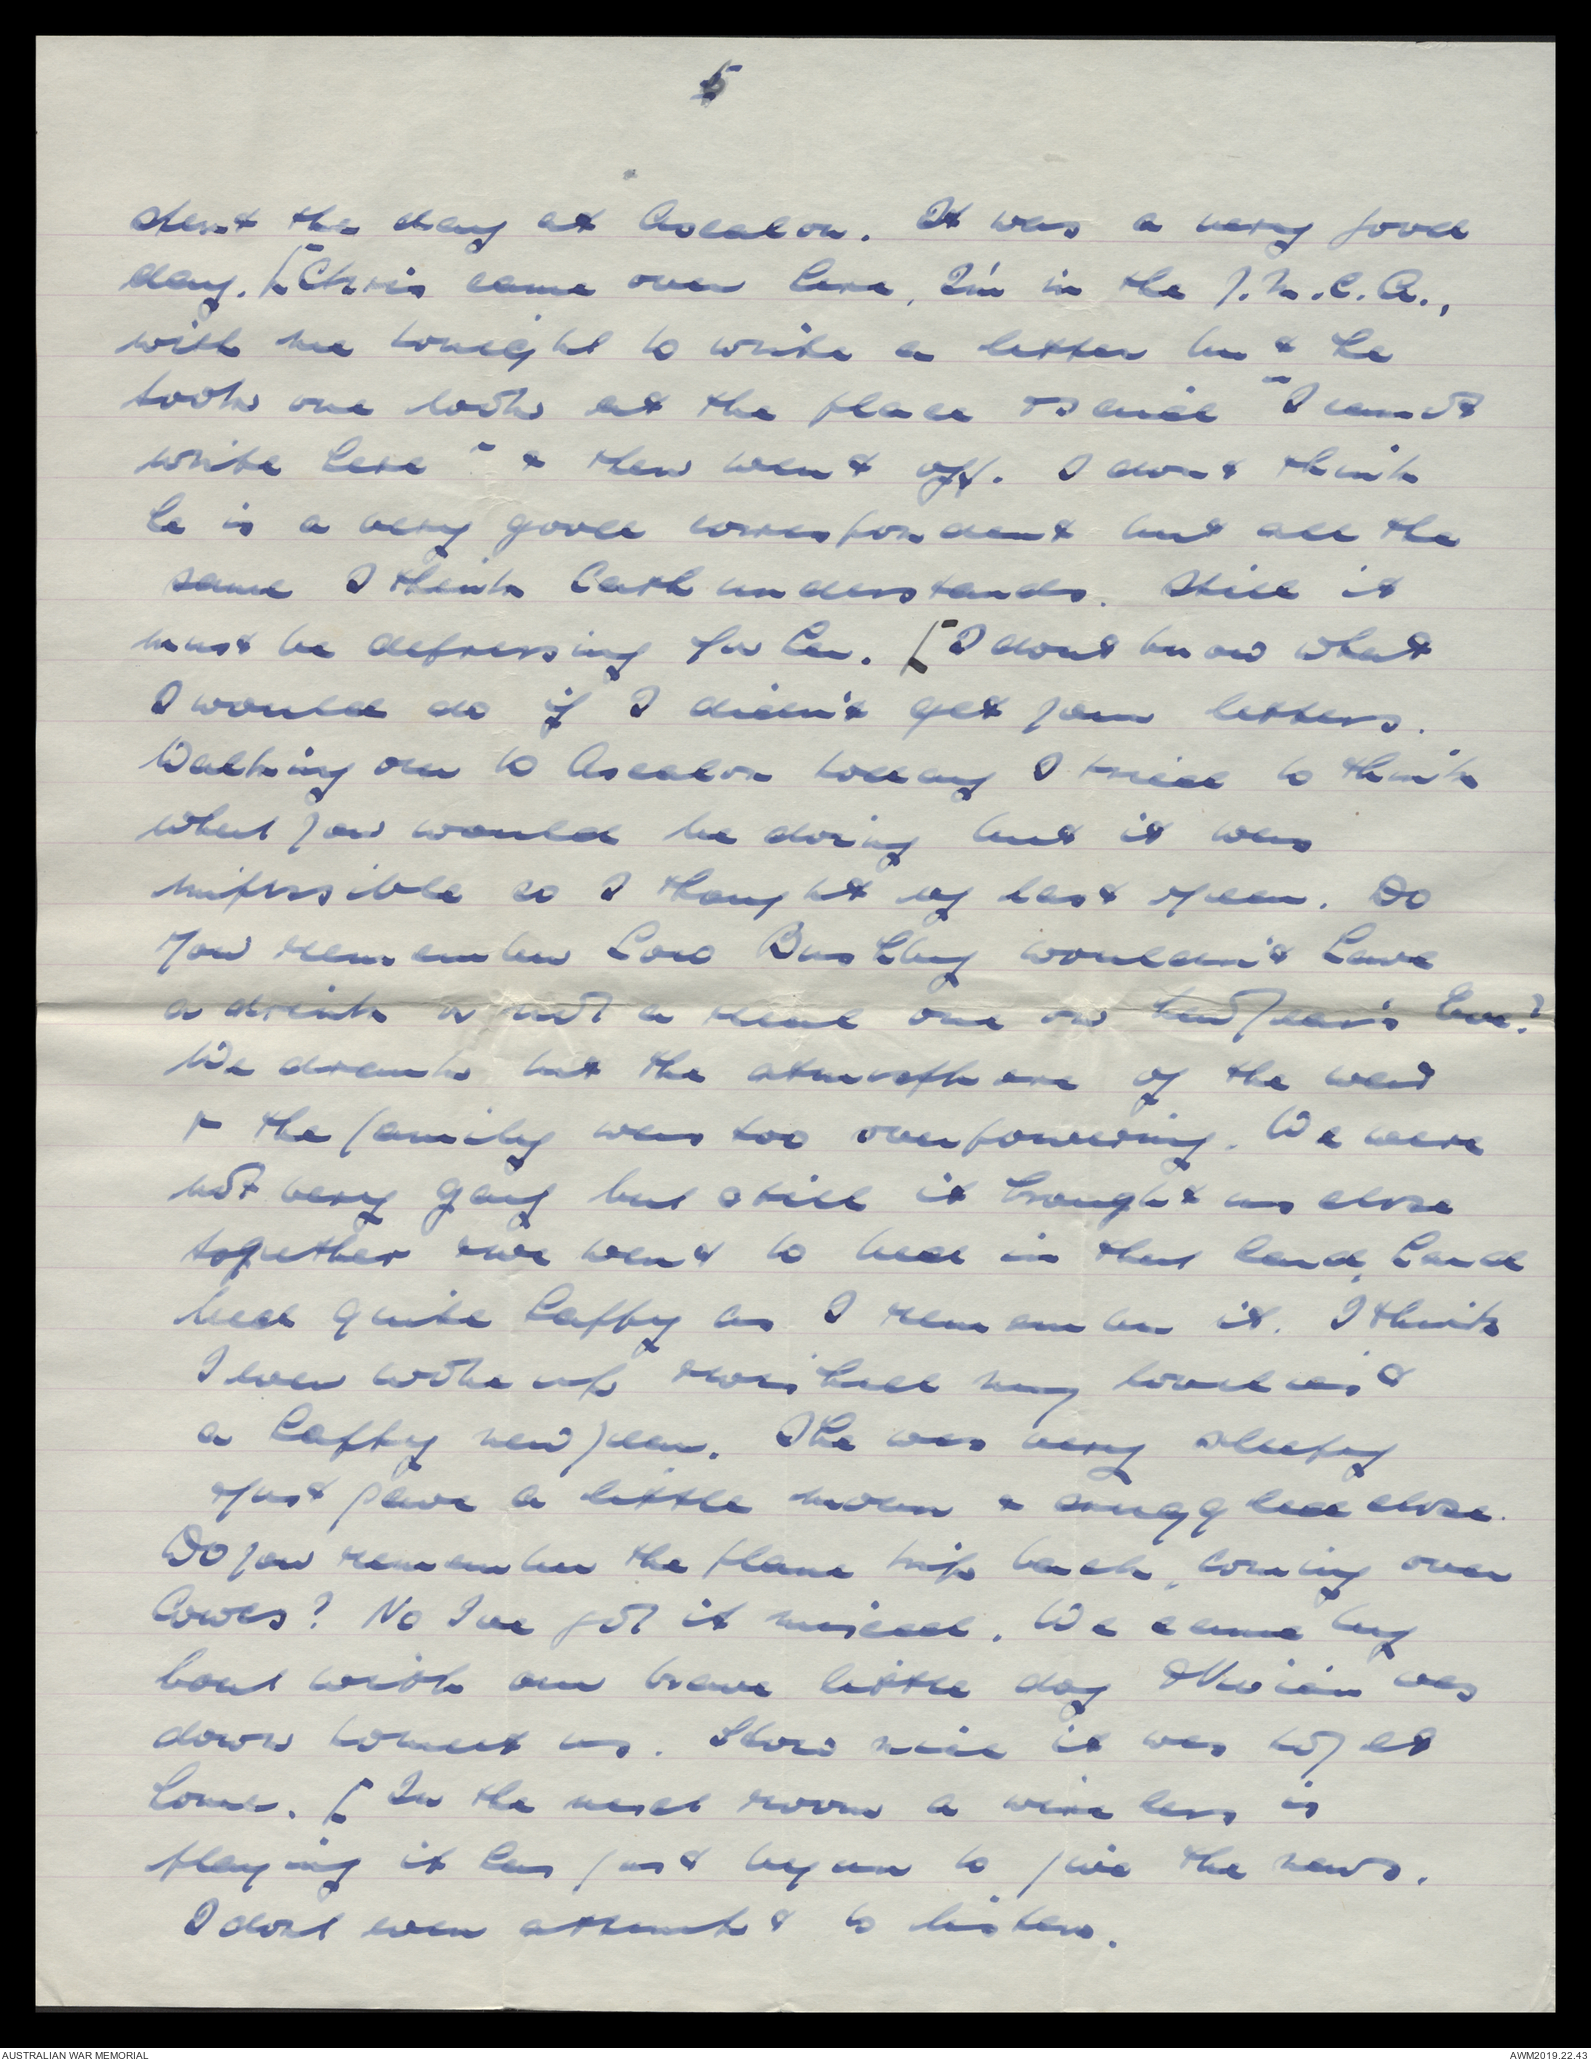 5
spent the day at Ascalon. It was a very good
day. [Chris came over here, I'm in the Y.M.C.A.,
with me tonight to write a letter but he
took one look at the place & said "I cannot
write here" & then went off. I dont think
he is a very good correspondent but all the
same I think Cath understands. Still it
must be depressing for her. [I dont know what
I would do if I didn't get your letters.
Walking over to Ascalon today I tried to think
what you would be doing but it was
impossible so I thought of last year. Do
you remember how Bushby wouldn't have
a drink or not a real one on New Year's Eve?
We drank but the atmosphere of the
& the family was too overpowering. We were
not very gay but still it brought us close
together & we went to bed in that hard, hard
bed quite happy as I remember it. I think
I even woke up & wished my loveliest
a happy new year. She was very sleepy
& just gave a little moan & snuggled close.
Do you remember the plane trip back, coming over
Cowes? No I've got it mixed. We came by
boat with our brave little dog & Vivian was
down to meet us. How nice it was to get
home. [In the next room a wireless is
playing it has just begun to give the news.
I dont even attempt to listen.
AUSTRALIAN WAR MEMORIAL
AWM2019.22.43